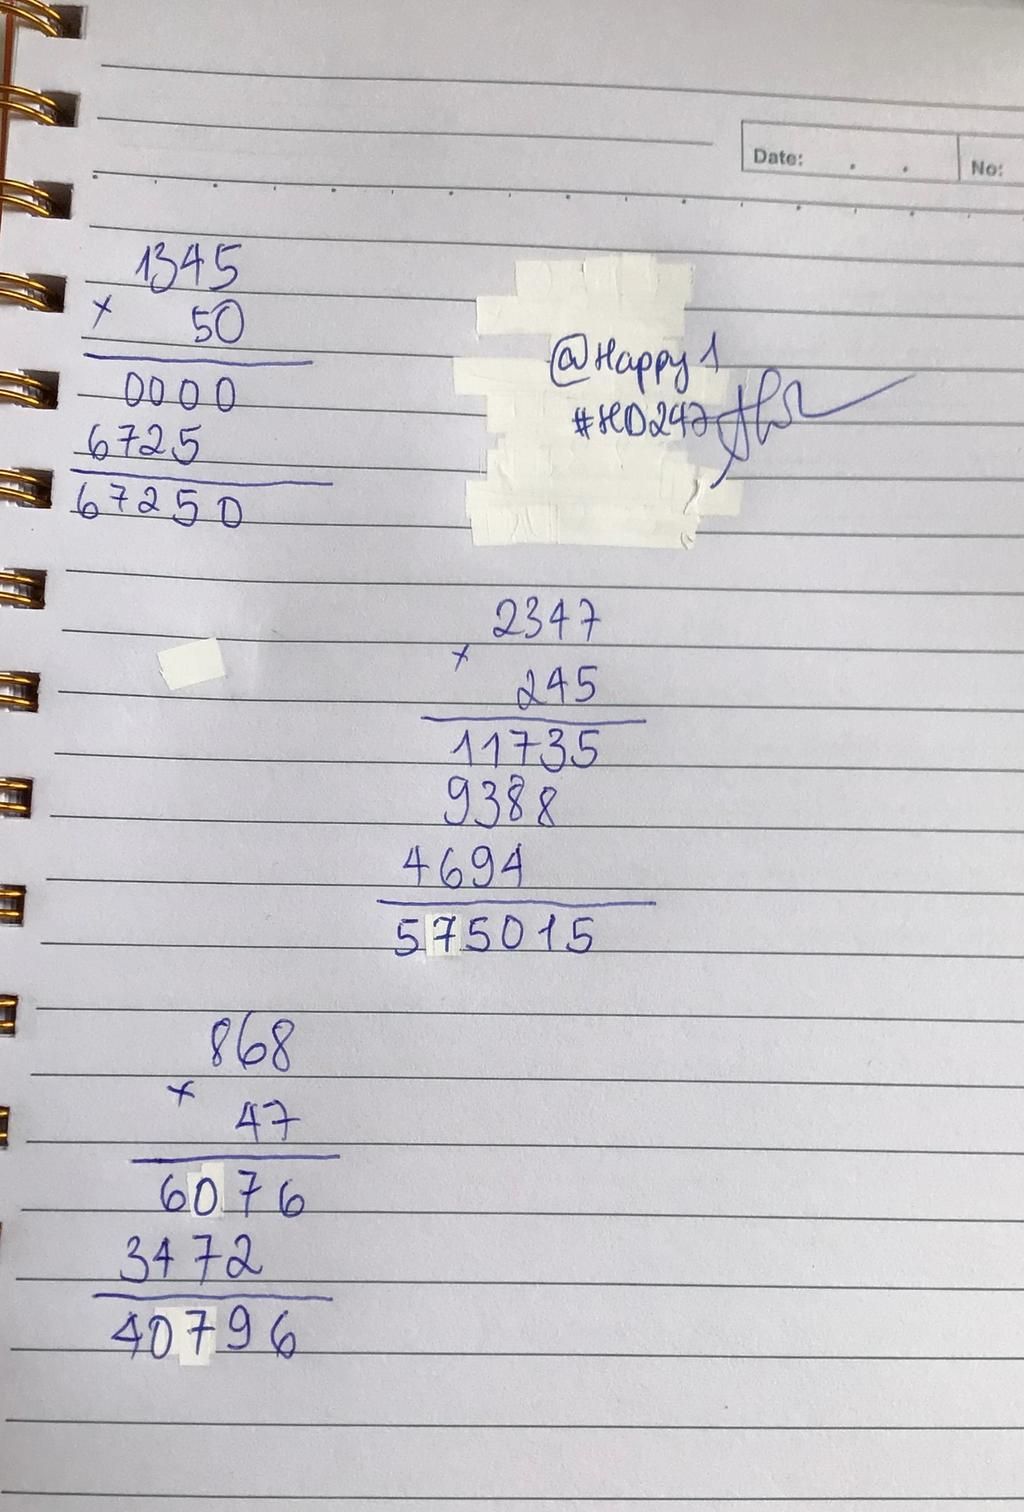 Date: . . No:
1345
× 50
0000
6725
67250
@Happy1
#HD247
2347
× 245
11735
9388
4694
575015
868
× 47
6076
3472
40796